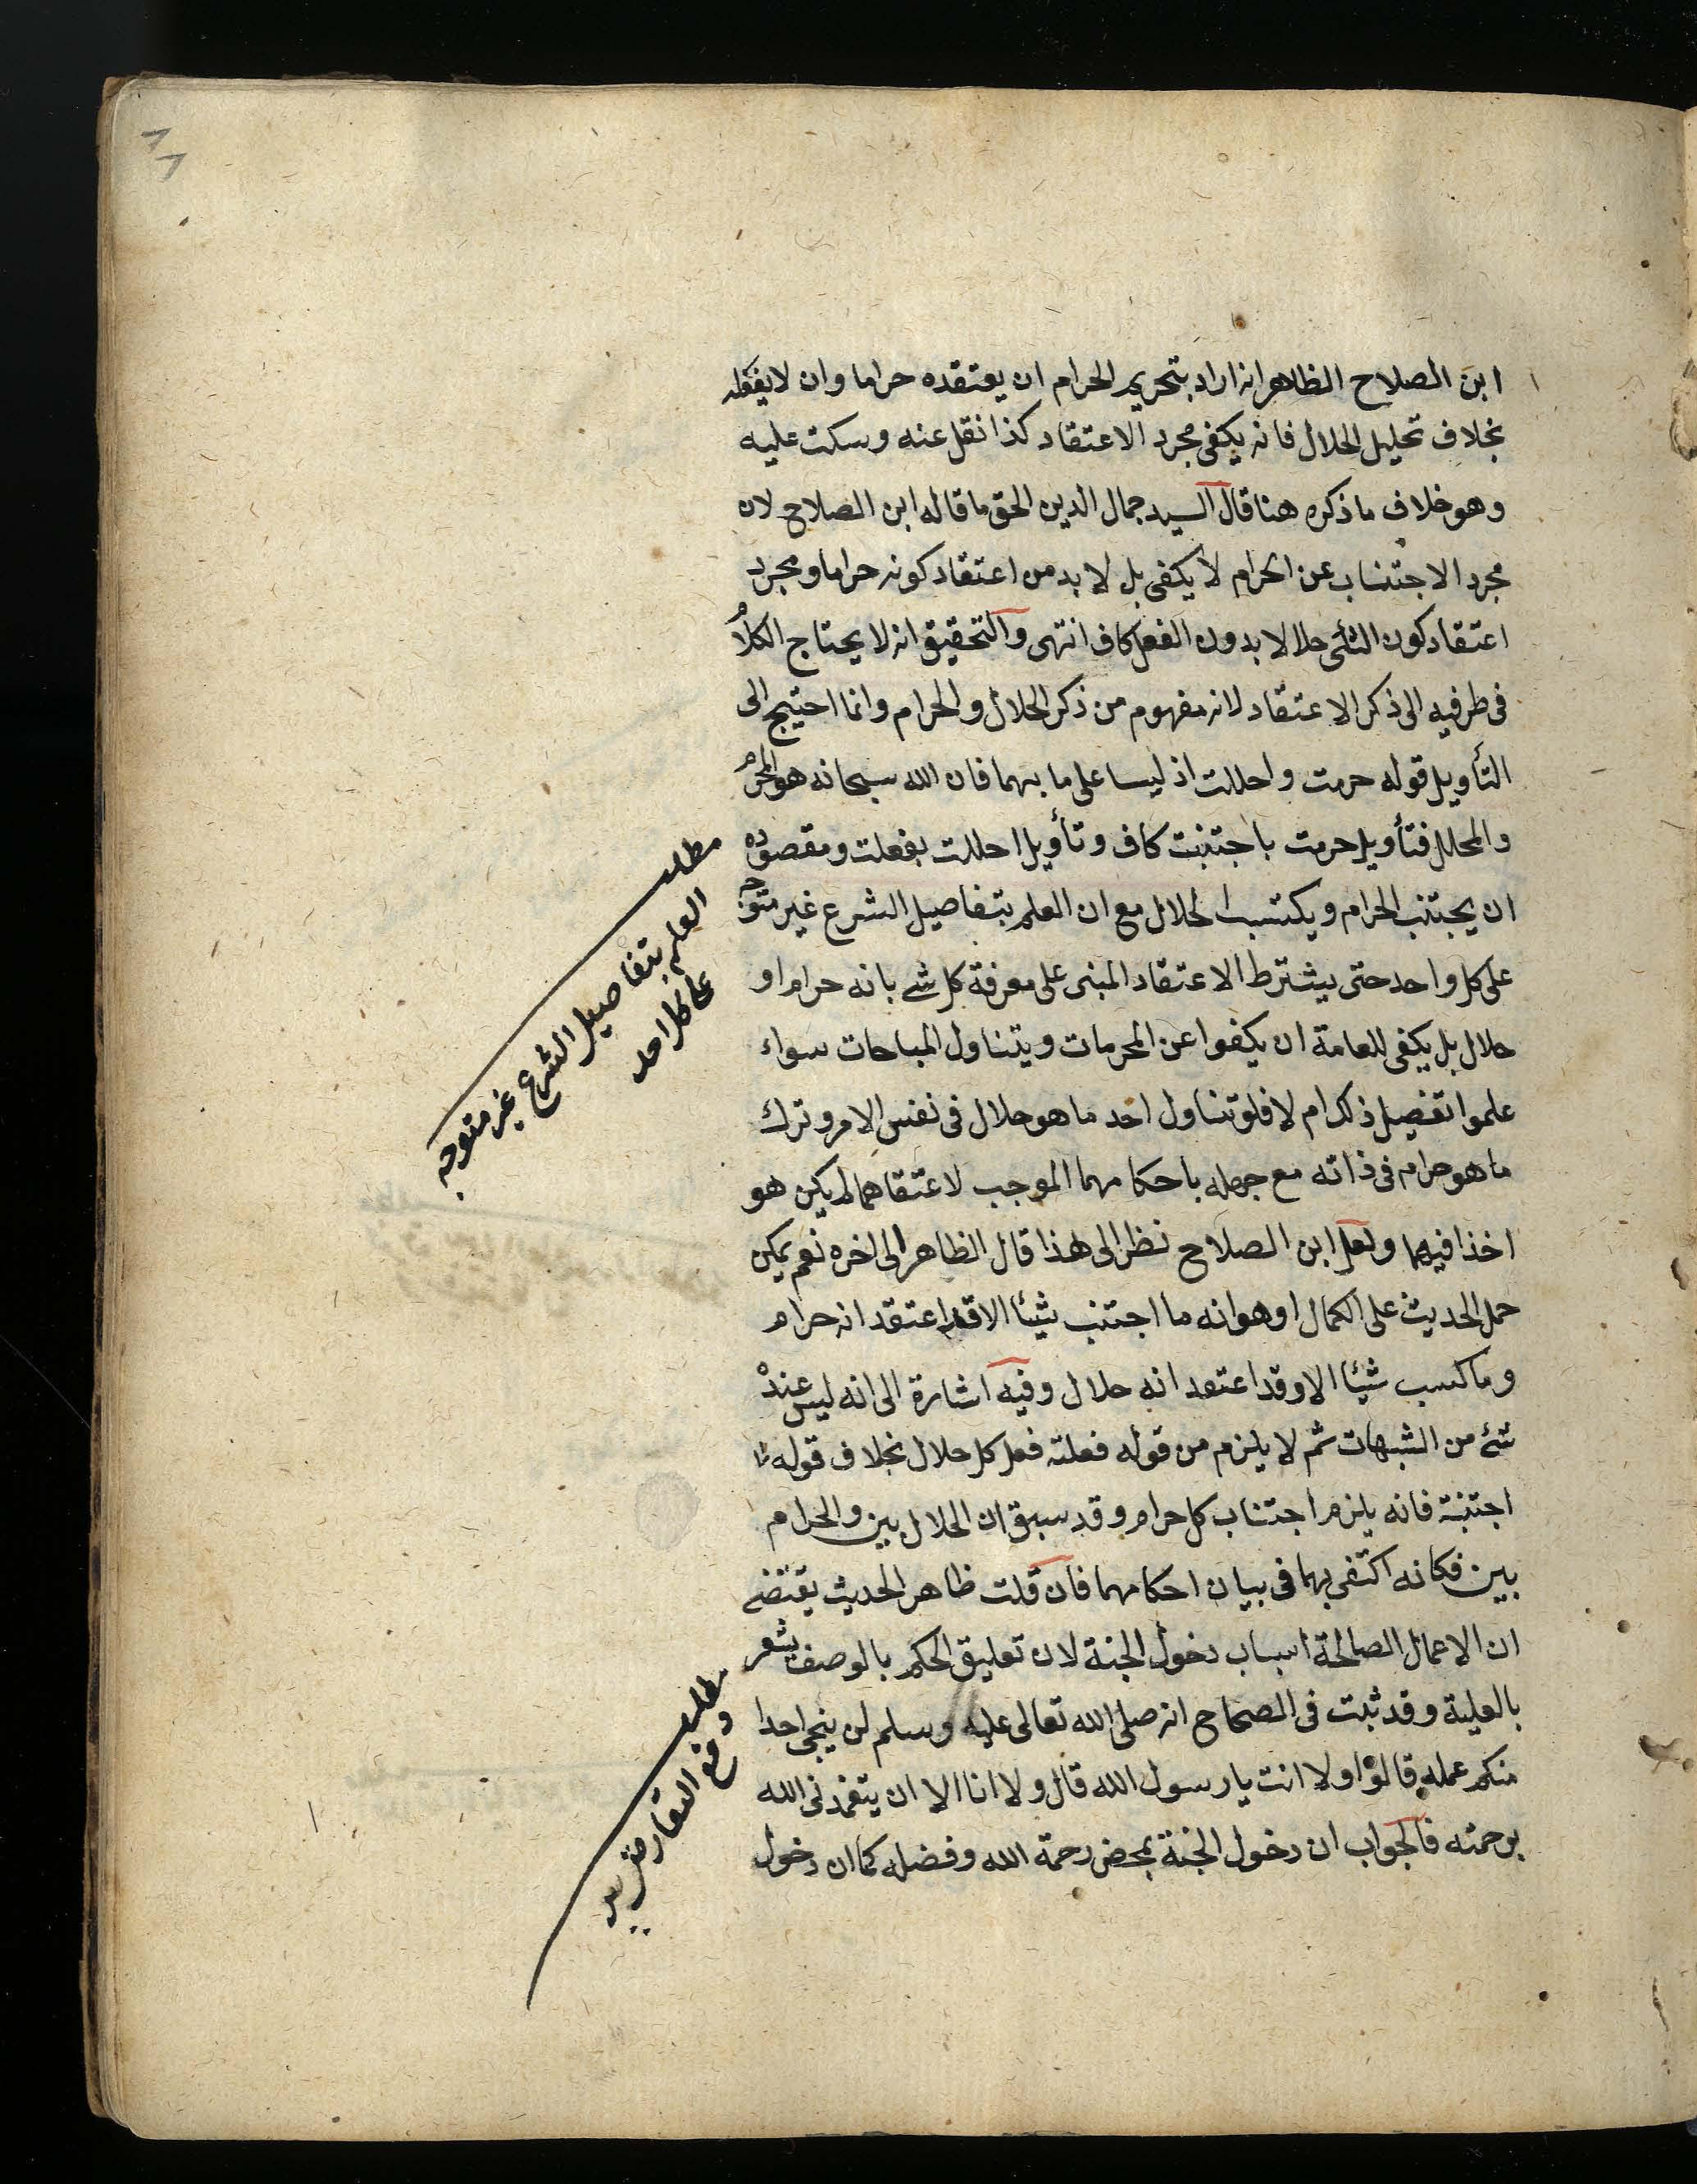 ابن الصلاح الظاهر انه اراد بتحريم الحرام ان يعتقده حراما وان لا يفعله
بخلاف تحليل الحلال فانه يكفي مجرد الاعتقاد كذا نقل عنه وسكت عليه
وهو خلاف ما ذكره هنا قال السيد جمال الدين الحق ما قاله ابن الصلاح لان
مجرد الاجتناب عن الحرام لا يكفي بل لا بد من اعتقاد كونه حراما ومجرد
اعتقاد كون الشئ حلالا بدون الفعل كاف انتهى والتحقيق انه لا يحتاج الكلام
في طرفيه الى ذكر الاعتقاد لانه مفهوم من ذكر الحلال والحرام وانما احتيج الى
التأويل قوله حرمت واحللت اذ ليسا على ما بهما فان الله سبحانه هو المحرم
والمحلل فتأويل حرمت باجتنبت كاف وتأويل احللت بفعلت ومقصوده
ان يجتنب الحرام ويكتسب الحلال مع ان العلم بتفاصيل الشرع غير متوجه
على كل واحد حتى يشترط الاعتقاد المبنى على معرفة كل شئ بانه حرام او
حلال بل يكفي للعامة ان يكفوا عن المحرمات ويتناول المباحات سواء
علموا تفصيل ذلك ام لا فلو تناول احد ما هو حلال في نفس الامر وترك
ما هو حرام في ذاته مع جهله باحكامهما الموجب لاعتقاهما لم يكن هو
اخذا فيهما ولعل ابن الصلاح نظر الى هذا قال الظاهر الى اخره نعم يمكن
حمل الحديث على الكمال وهو انه ما اجتنب شيئا الا وقد اعتقد انه حرام
وما كسب شيئا الا وقد اعتقد انه حلال وفيه اشارة الى انه ليس عنده
شئ من الشبهات ثم لا يلزم من قوله فعلته فعل كل حلال بخلاف قوله
اجتنبته فانه يلزم اجتناب كل حرام وقد سبق ان الحلال بين والحرام
بين فكانه اكتفى بهما في بيان احكامهما فان قلت ظاهر الحديث يقتضي
ان الاعمال الصالحة اسباب دخول الجنة لان تعليق الحكم بالوصف يشعر
بالعلية وقد ثبت في الصحاح انه صلى الله تعالى عليه وسلم لن ينجى احدا
منكم عمله قالوا ولا انت يا رسول الله قال ولا انا الا ان يتغمدني الله
برحمته فالجواب ان دخول الجنة بمحض رحمة الله وفضله كما ان دخول
مطلب
العلم بتفاصيل الشرع غير متوجه
على كل احد
مطلب
دفع التعارض بين